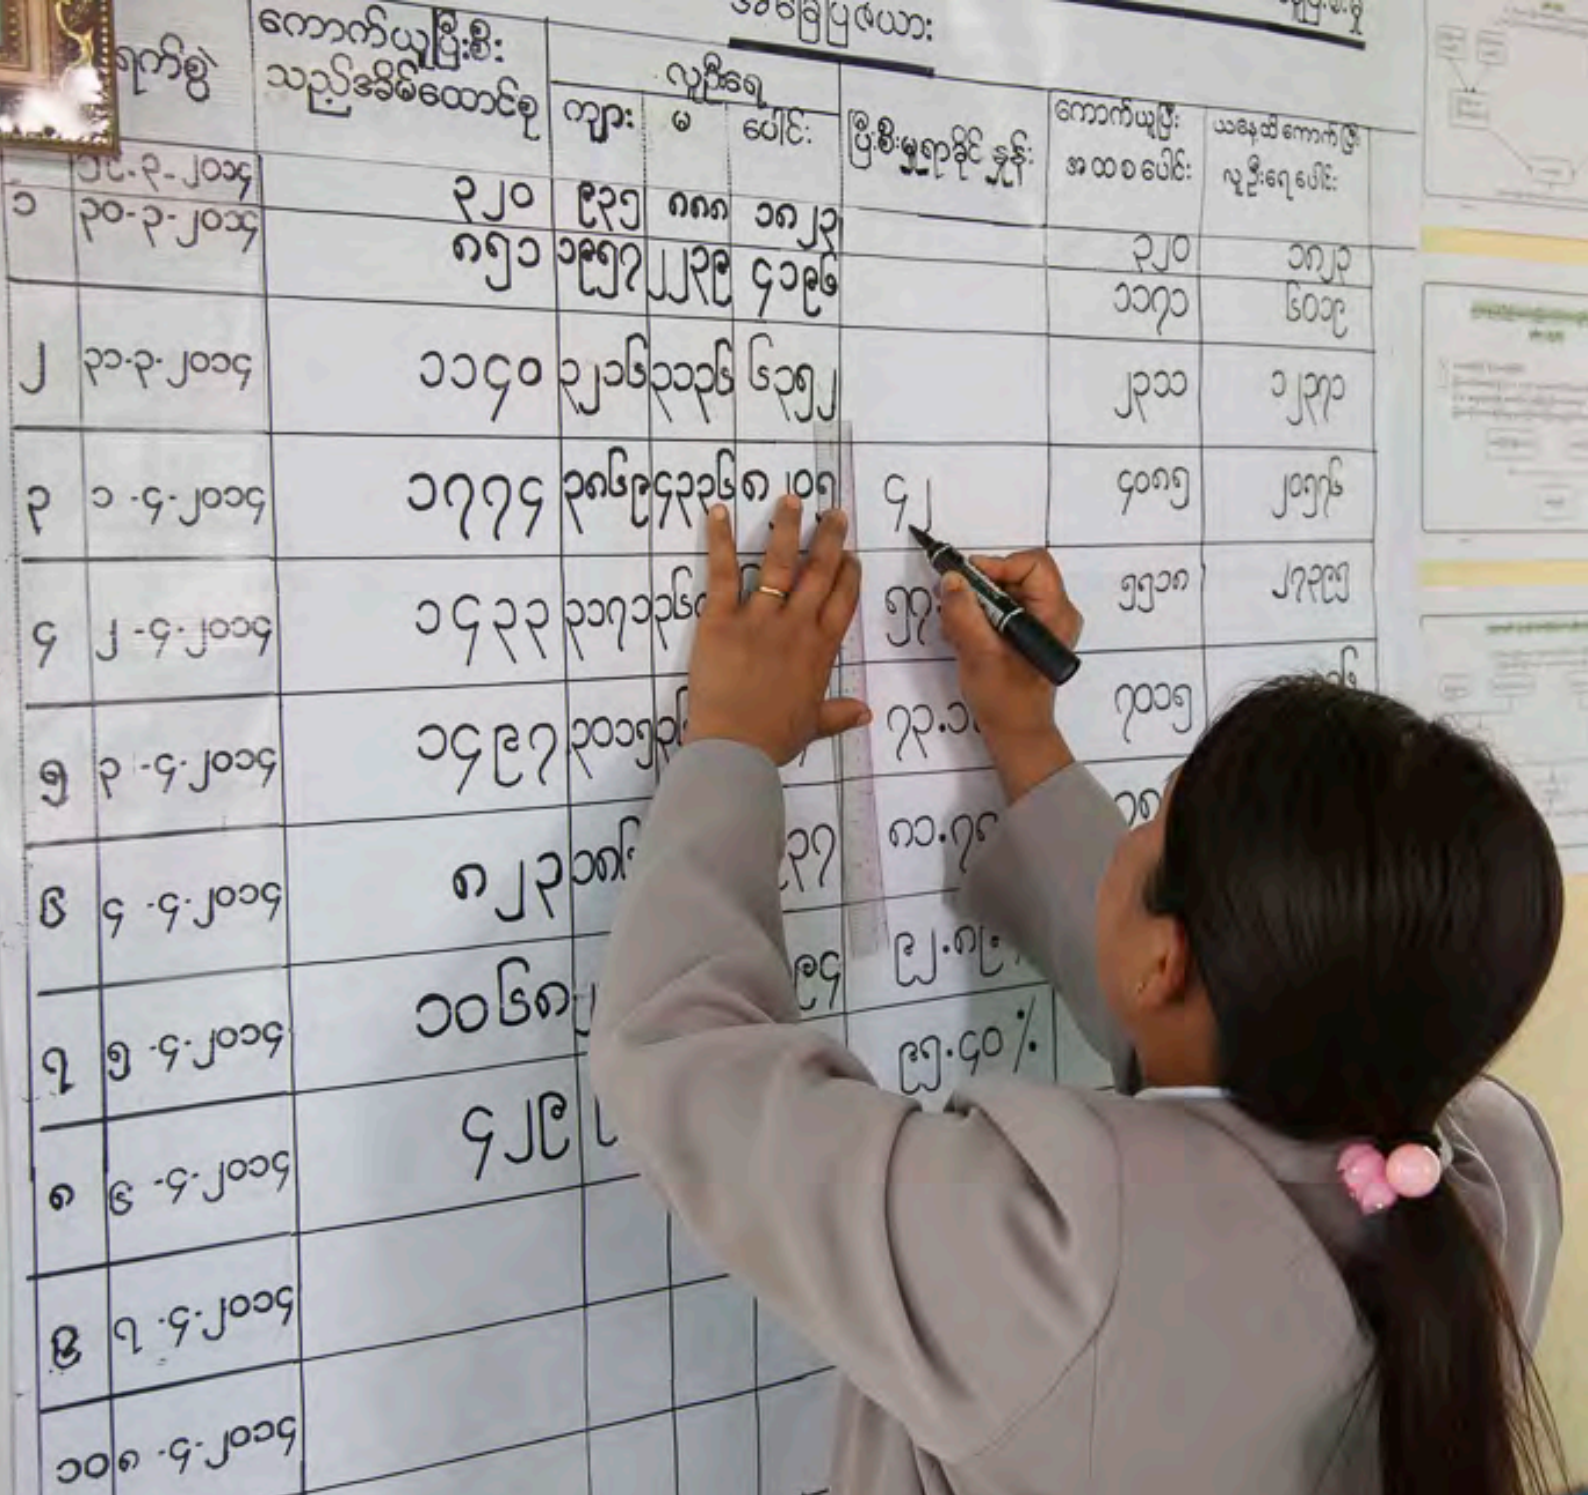 အခြေပြဇယား
ရက်စွဲ ကောက်ယူပြီးစီး သည့်အိမ်ထောင်စု လူဦးရေ ပြီးစီးမှုရာခိုင်နှုန်း ကောက်ယူပြီး အထစပေါင်း ယနေ့ထိကောက်ပြီး လူဦးရေပေါင်း
ကျား မ ပေါင်း
၃၂၀ ၉၃၅ ၈၈၈ ၁၈၂၃ ၃၂၀ ၁၈၂၃
၁ ၃၀-၃-၂၀၁၄ ၈၅၁ ၁၉၅၇ ၂၂၃၉ ၄၁၉၆ ၁၁၇၁ ၆၀၁၉
၂ ၃၁-၃-၂၀၁၄ ၁၁၄၀ ၃၂၁၆ ၃၁၃၆ ၆၃၅၂ ၂၃၁၁ ၁၂၃၇၁
၃ ၁-၄-၂၀၁၄ ၁၇၇၄ ၃၈၆၉ ၄၃၃၆ ၈၂၀၅ ၄၂ ၄၀၈၅ ၂၀၅၇၆
၄ ၂-၄-၂၀၁၄ ၁၄၃၃ ၃၁၇၁ ၅၇. ၅၅၁၈ ၂၇၃၉၅
၅ ၃-၄-၂၀၁၄ ၁၄၉၇ ၃၀၁၅ ၇၃.၁ ၇၀၁၅
၆ ၄-၄-၂၀၁၄ ၈၂၃ ၃၇ ၈၁.၇
၇ ၅-၄-၂၀၁၄ ၁၀၆၈ ၉၄ ၉၂.၈
၈ ၆-၄-၂၀၁၄ ၄၂၉ ၉၅.၄၀%
၉ ၇-၄-၂၀၁၄
၁၀ ၈-၄-၂၀၁၄